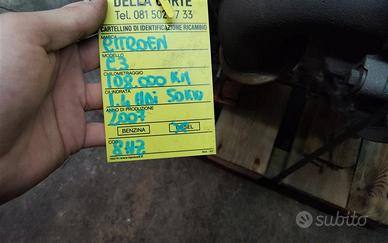 DELLA CORTE
Tel. 081 502 7733
CARTELLINO DI IDENTIFICAZIONE RICAMBIO
MARCA
CITROEN
MODELLO
C3
CHILOMETRAGGIO
108.000 KM
CILINDRATA
1.4 HDI 50KW
ANNO DI PRODUZIONE
2007
BENZINA DIESEL
COD.
8HZ
subito